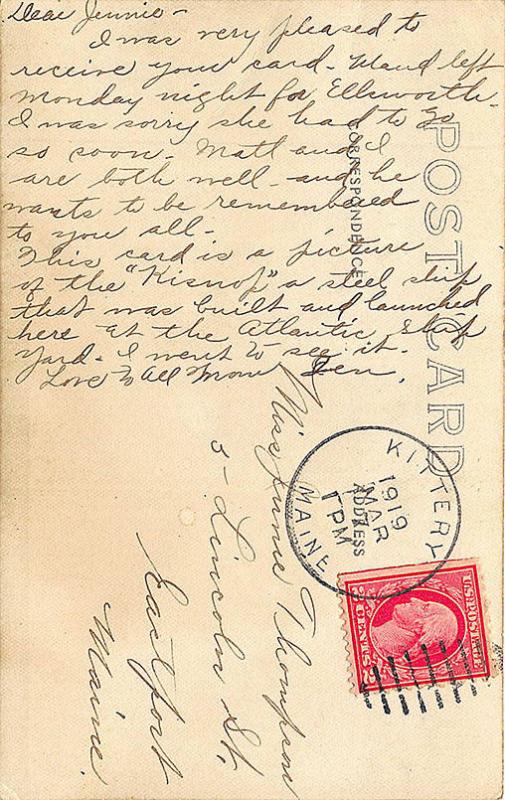 Dear Jennie -
I was very pleased to
receive your card. Maud left
Monday night for Ellsworth.
I was sorry she had to go
so soon. Matt and I
are both well - and he
wants to be remembered
to you all -
This card is a picture
of the "Kisnop," a steel ship
that was built and launched
here at the Atlantic Ship
Yard. I went to see it.
Love to all from Jen.
POST CARD
CORRESPONDENCE
ADDRESS
KITTERY
1919
MAR
17
1 PM
MAINE
U.S. POSTAGE
2 CENTS 2
Miss Jennie Thompson
5 - Lincoln St.
Eastport
Maine.